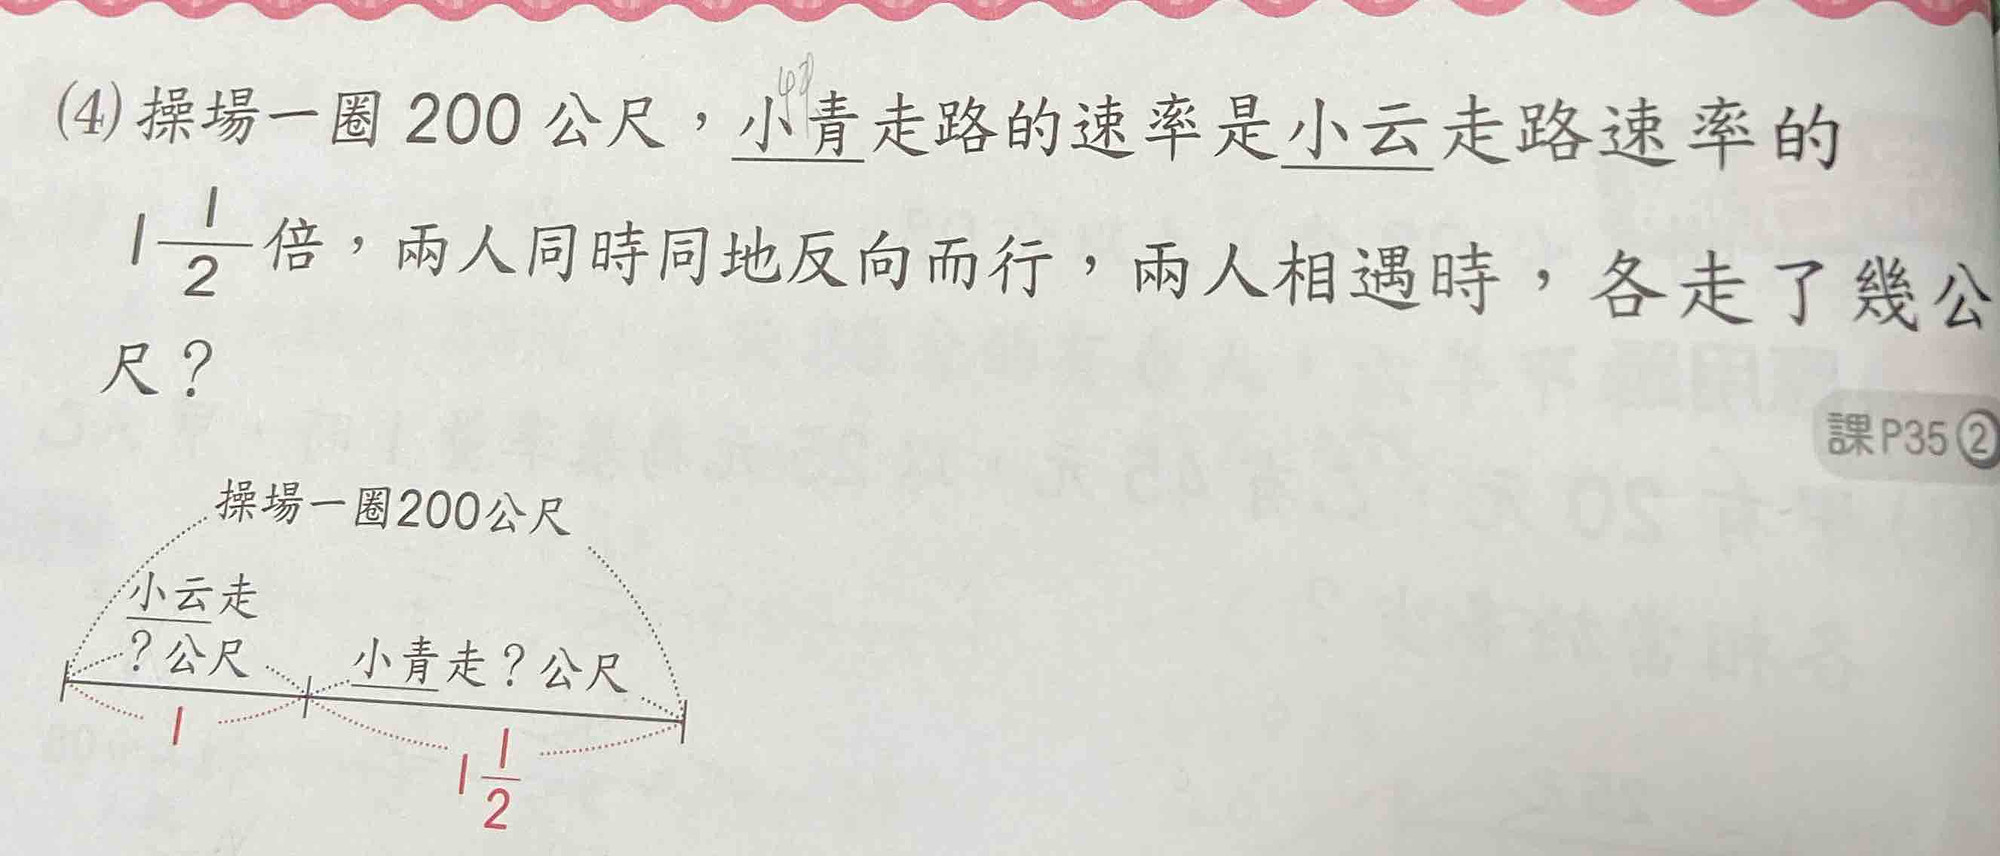 (4)操場一圈 200 公尺，小青走路的速率是小云走路速率的
1 1/2 倍，兩人同時同地反向而行，兩人相遇時，各走了幾公
尺？
課P35②
操場一圈200公尺
小云走
？公尺
小青走？公尺
1
1 1/2